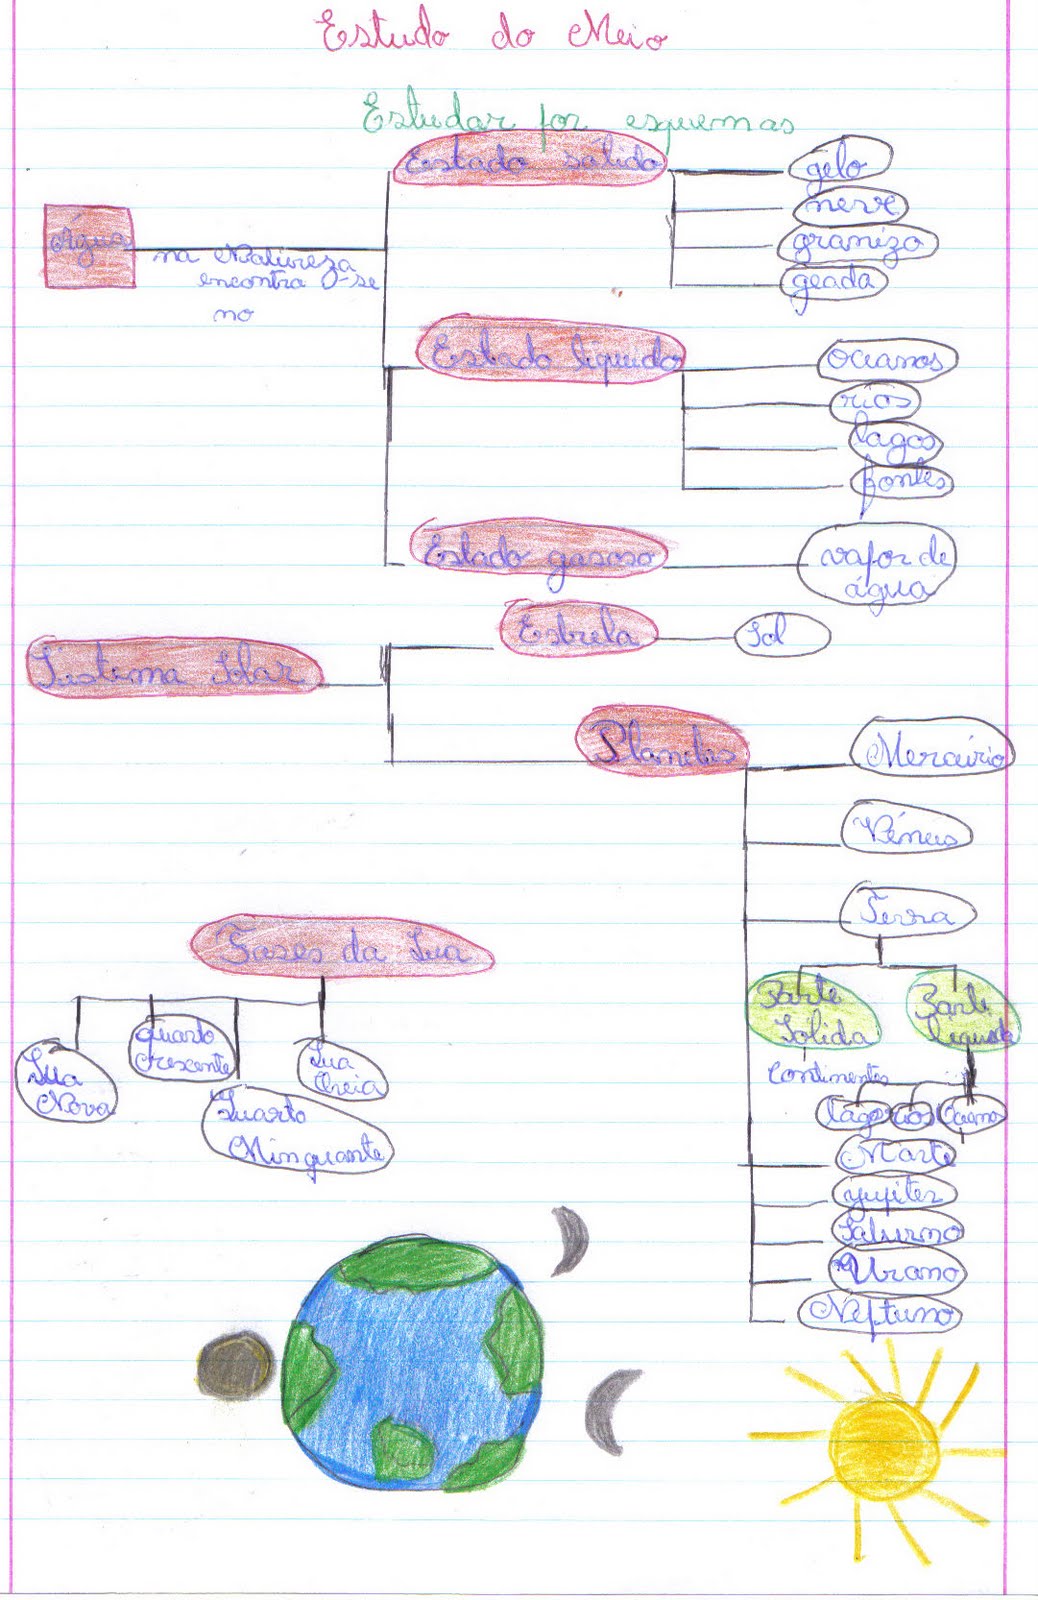 Estudo do Meio
Estudar por esquemas
Água
na Natureza
encontra-se
no
Estado sólido
gelo
neve
granizo
geada
Estado líquido
oceanos
rios
lagos
fontes
Estado gasoso
vapor de
água
Sistema Solar
Estrela
Sol
Planetas
Mercúrio
Vénus
Terra
Parte
Sólida
Parte
líquida
Continentes
lagos
rios
Oceano
Marte
yupiter
Saturno
Urano
Neptuno
Fases da Lua
Lua
Nova
quarto
Crescente
Quarto
Minguante
Lua
Cheia